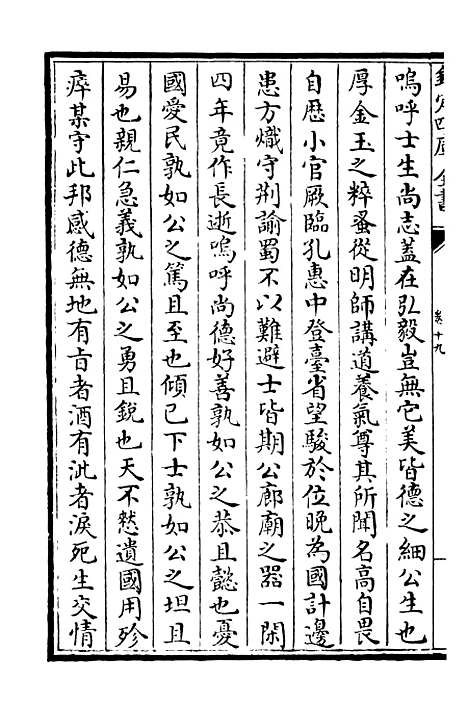 欽定四庫全書
卷十九
嗚呼士生尚志蓋在弘毅豈無它美皆德之細公生也
厚金玉之粹蚤從明師講道養氣尊其所聞名高自畏
自歴小官厥臨孔惠中登臺省望駿於位晚為國計邊
患方熾守荆諭蜀不以難避士皆期公廊廟之器一閑
四年竟作長逝嗚呼尚德好善孰如公之恭且懿也憂
國愛民孰如公之篤且至也傾己下士孰如公之坦且
易也親仁急義孰如公之勇且銳也天不憖遺國用殄
瘁某守此邦感德無地有㫖者酒有泚者淚死生交情